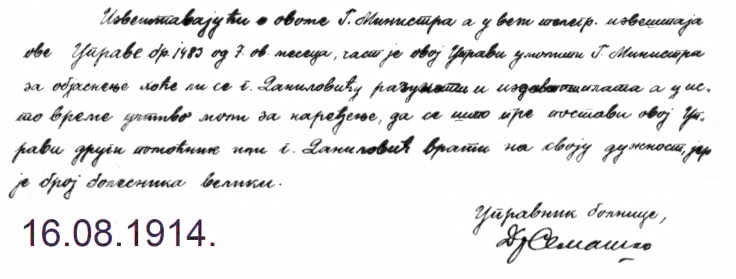 Извештавајући о овоме Г. Министра а у вези телегр. извештаја
ове Управе бр. 1483 од 7. ов. месеца, част је овој Управи умолити Г. Министра
за објасненье хоће ли се г. Даниловићу и плата а у ис-
то време учтиво моли за наређење, да се што пре постави овој Уп-
рави други помоћник или г. Даниловић врати на своју дужност, јер
је број болесника велики.
Управник болнице,
Др Семашко
16.08.1914.